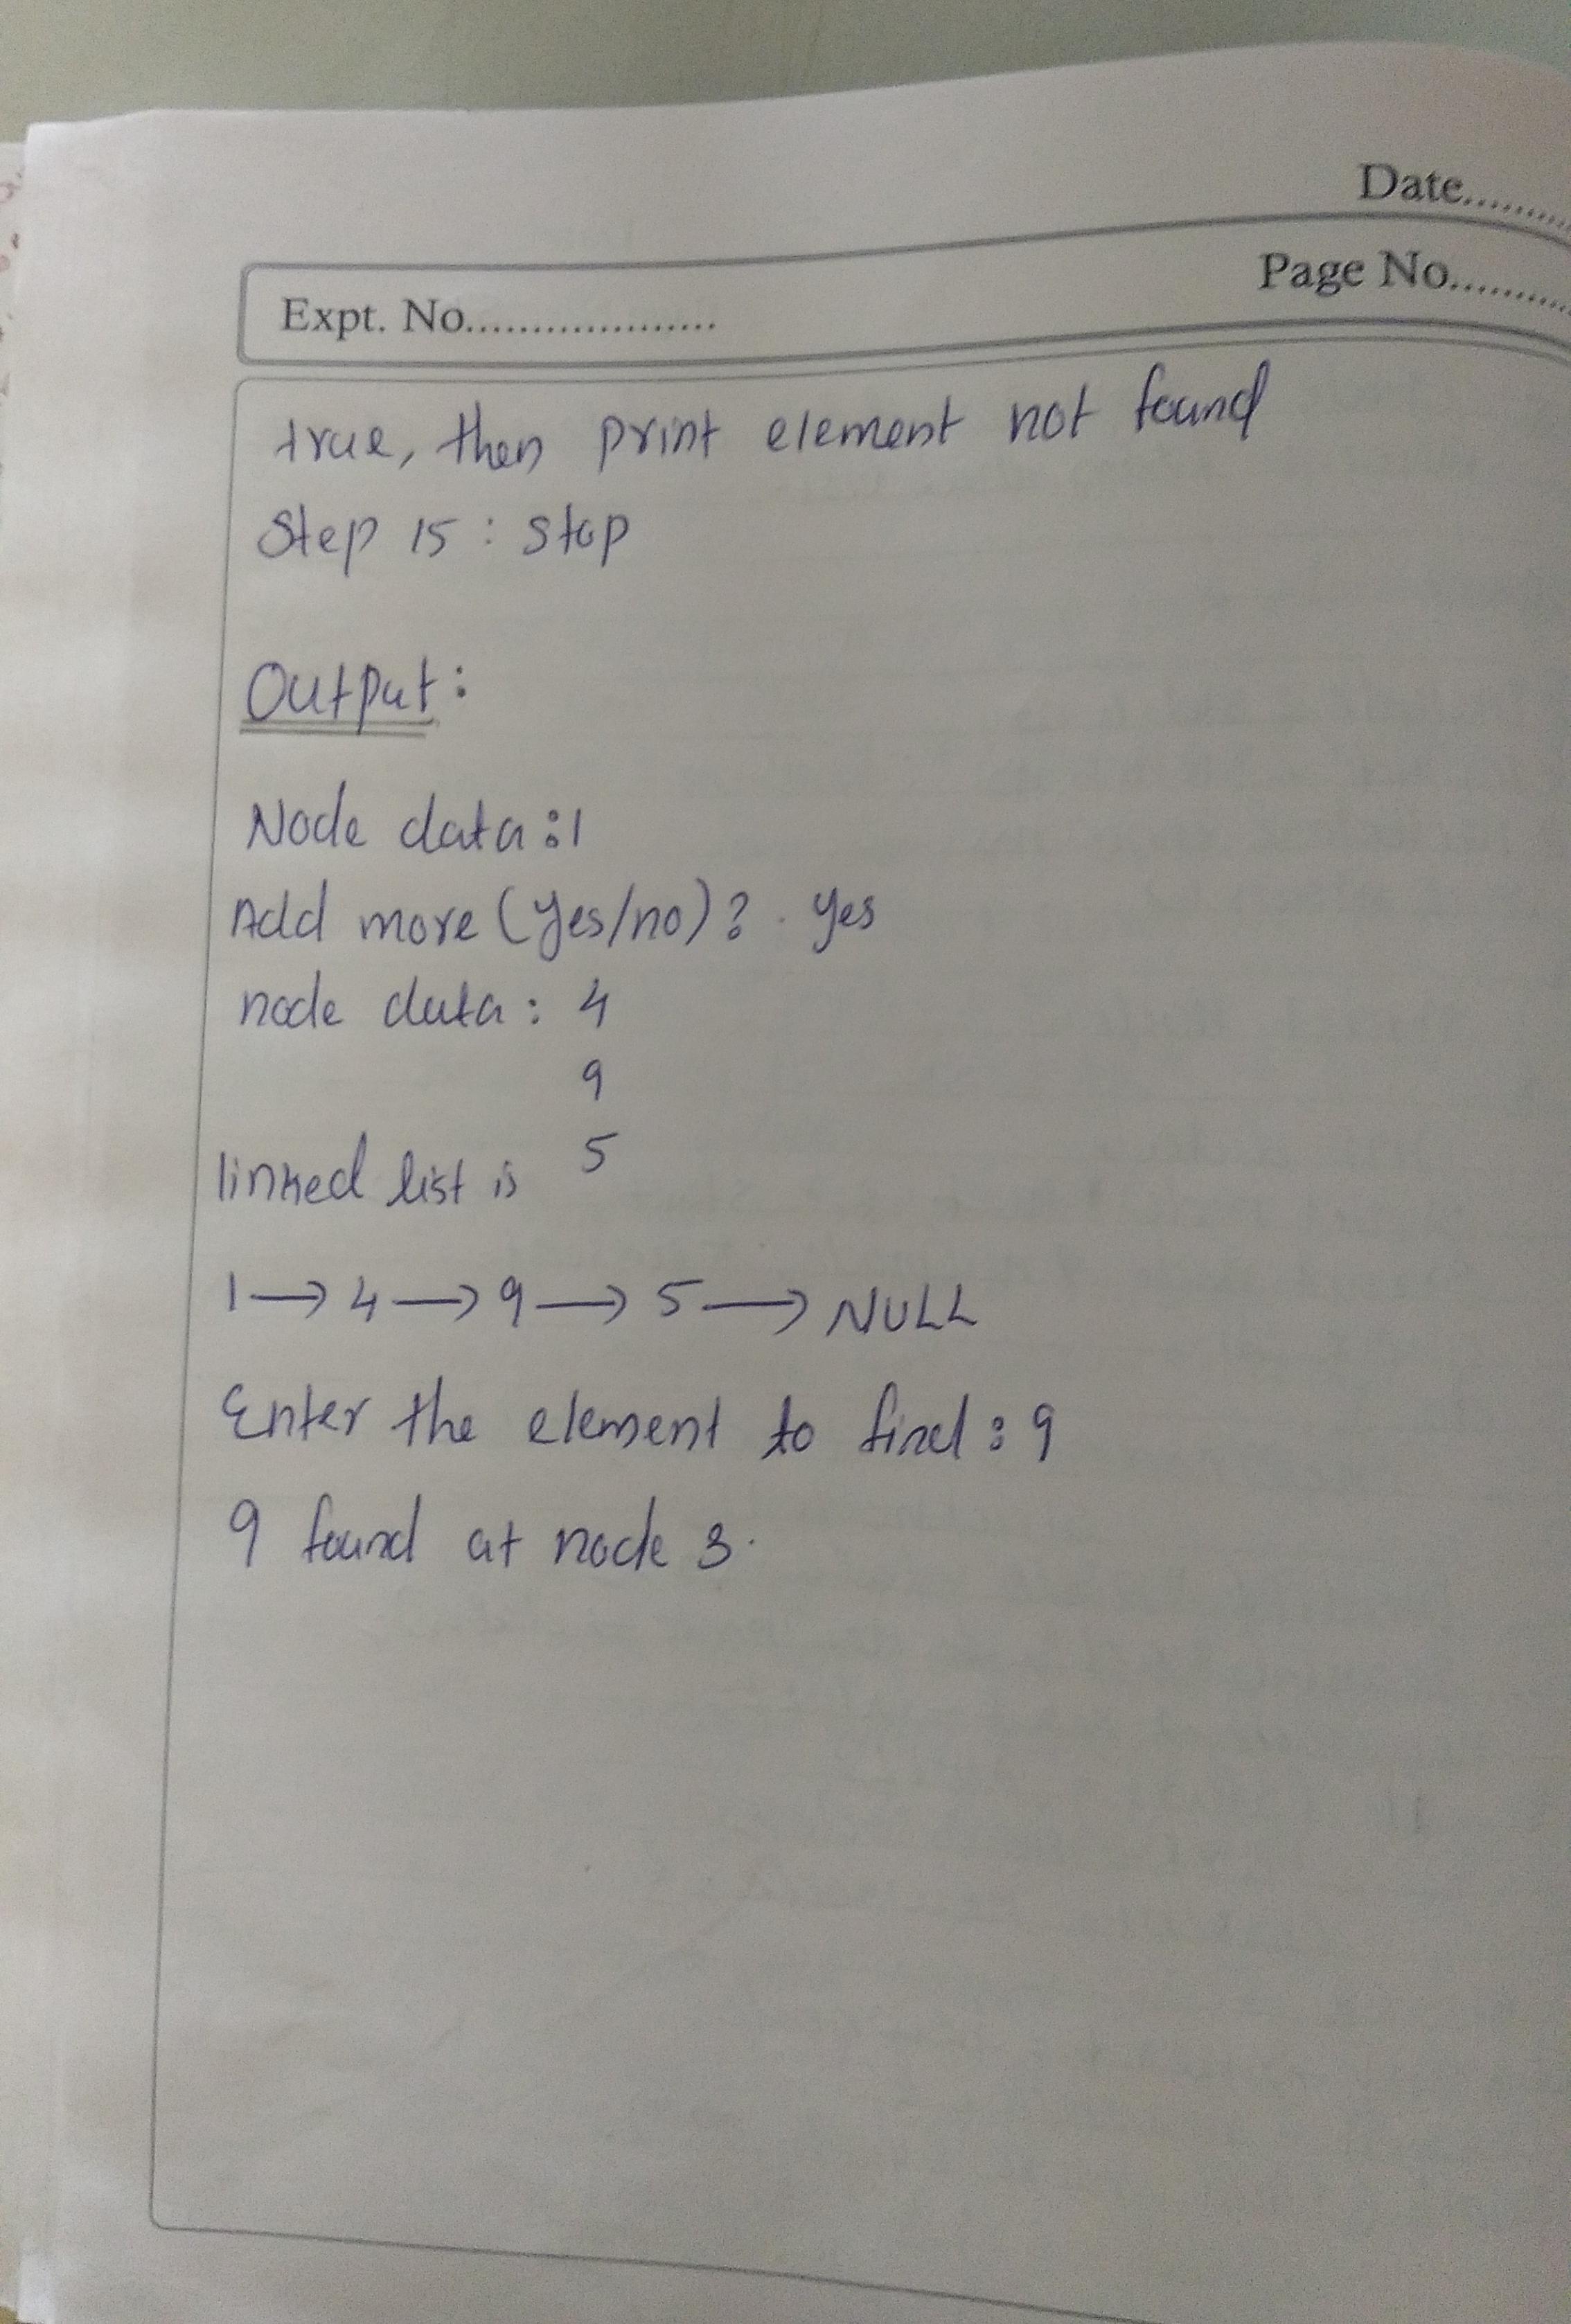 Date..........
Page No..........
Expt. No...................
true, then print element not found
Step 15 : stop
Output:
Node data:1
Add more (yes/no)? yes
node data: 4
9
5
linked list is
1 → 4 → 9 → 5 → NULL
Enter the element to find: 9
9 found at node 3.